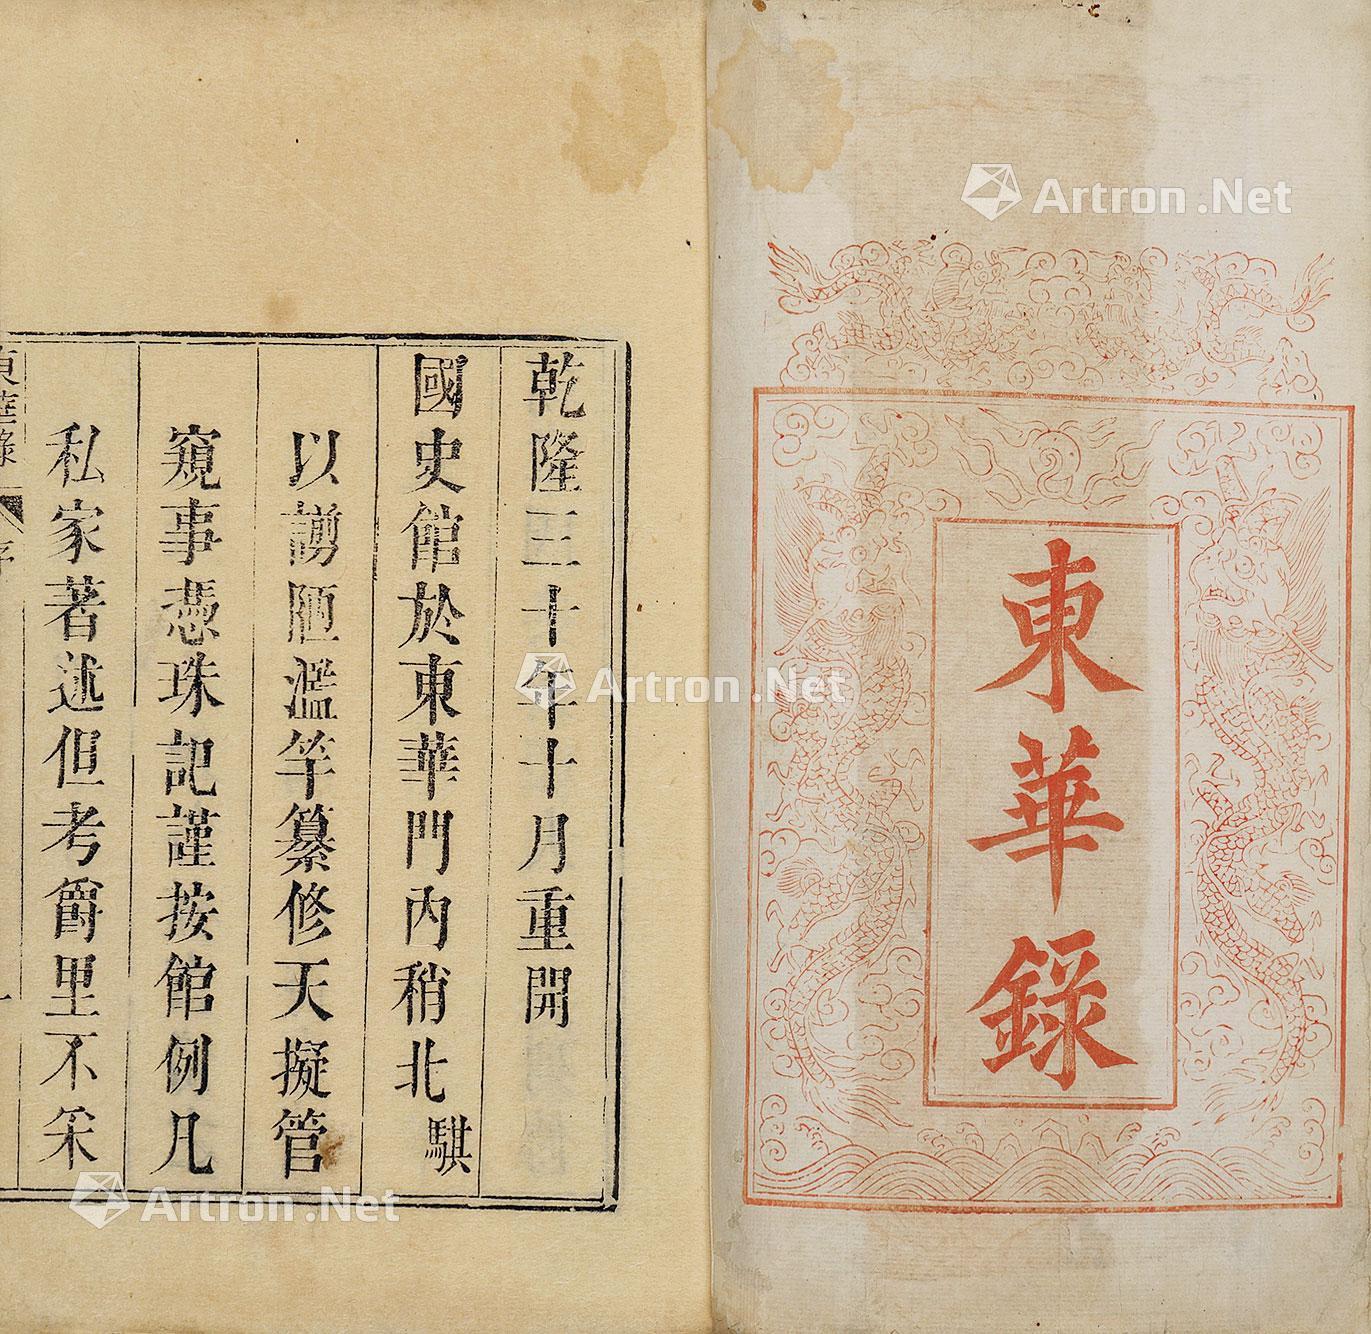 東華錄
乾隆三十年十月重開
國史館於東華門內稍北騏
以謭陋濫竽纂修天擬管
窺事憑珠記謹按館例凡
私家著述但考爵里不采
東華錄 序
Artron.Net
Artron.Net
Artron.Net